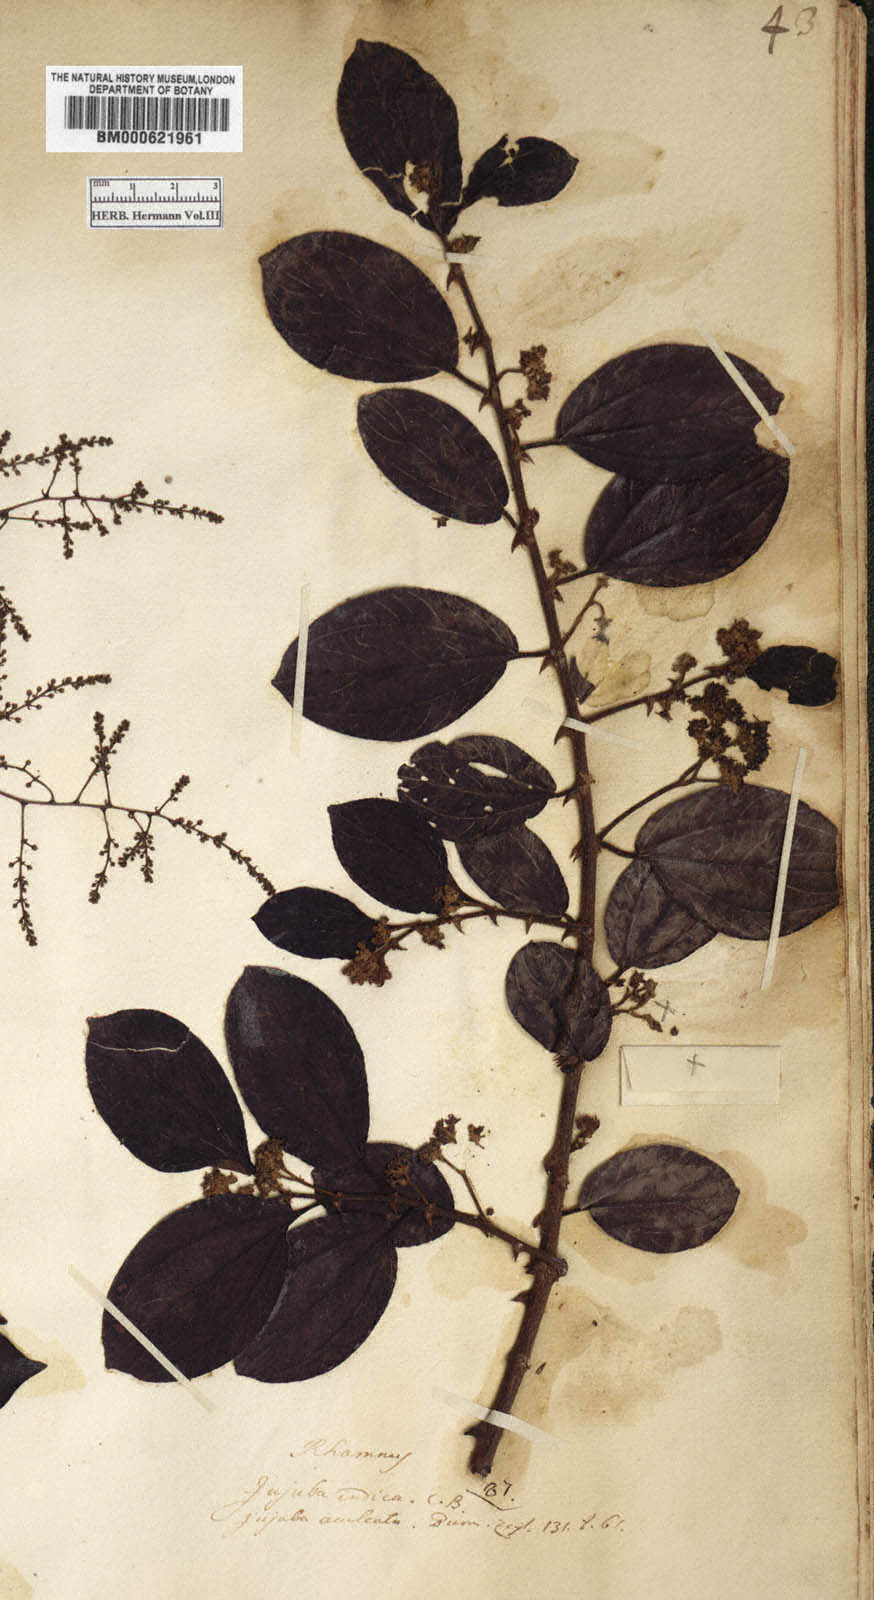 43
THE NATURAL HISTORY MUSEUM, LONDON
DEPARTMENT OF BOTANY
BM000621961
mm 1 2 3
HERB. Hermann Vol.III
+
+
Rhamnus
Jujuba indica. C.B 87.
Jujuba aculeata. Burm. zeyl. 131. t. 61.